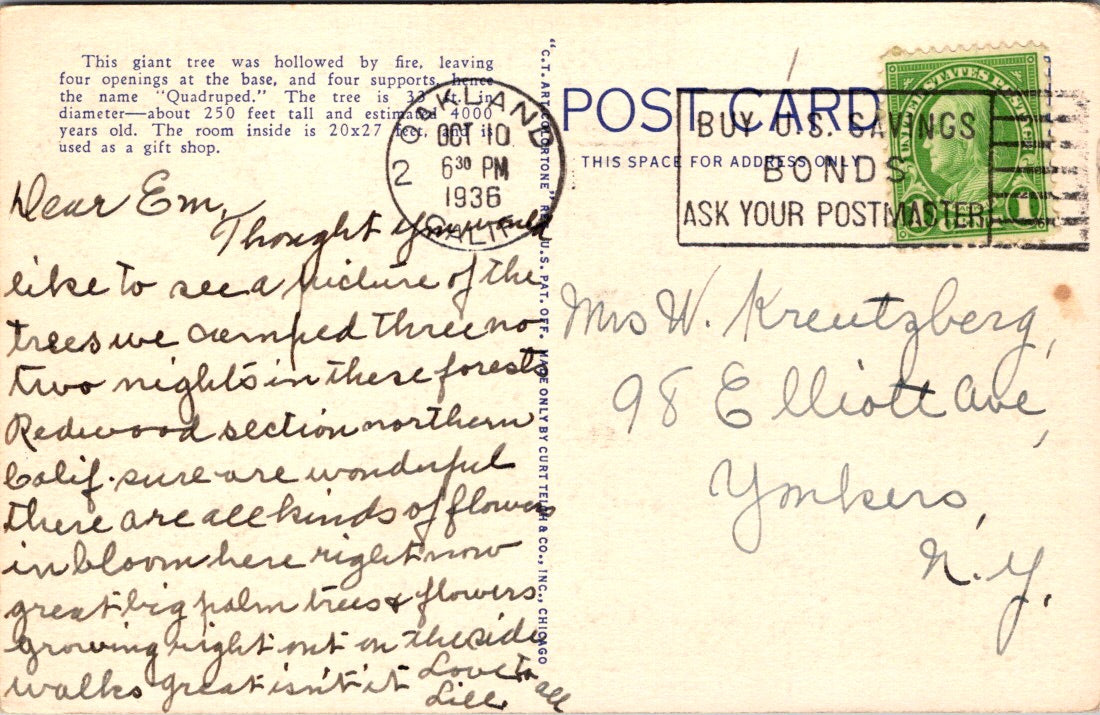 This giant tree was hollowed by fire, leaving
four openings at the base, and four supports, hence
the name "Quadruped." The tree is 33 ft. in
diameter—about 250 feet tall and estimated 4000
years old. The room inside is 20x27 feet, and is
used as a gift shop.
Dear Em,
Thought you would
like to see a picture of the
trees we camped three no
two nights in these forests
Redwood section northern
Calif. sure are wonderful
there are all kinds of flowers
in bloom here right now
great big palm trees & flowers
growing right out on the side
walks great isn't it
Love to all
Lill
"C.T. ART-COLORTONE" REG. U.S. PAT. OFF. MADE ONLY BY CURT TEICH & CO., INC., CHICAGO
OAKLAND
2
OCT 10
6 30 PM
1936
CALIF.
POST CARD
THIS SPACE FOR ADDRESS ONLY
BUY U.S. SAVINGS
BONDS
ASK YOUR POSTMASTER
UNITED STATES POSTAGE
1 1
Mrs W. Kreutzberg,
98 Elliott Ave,
Yonkers,
N.Y.